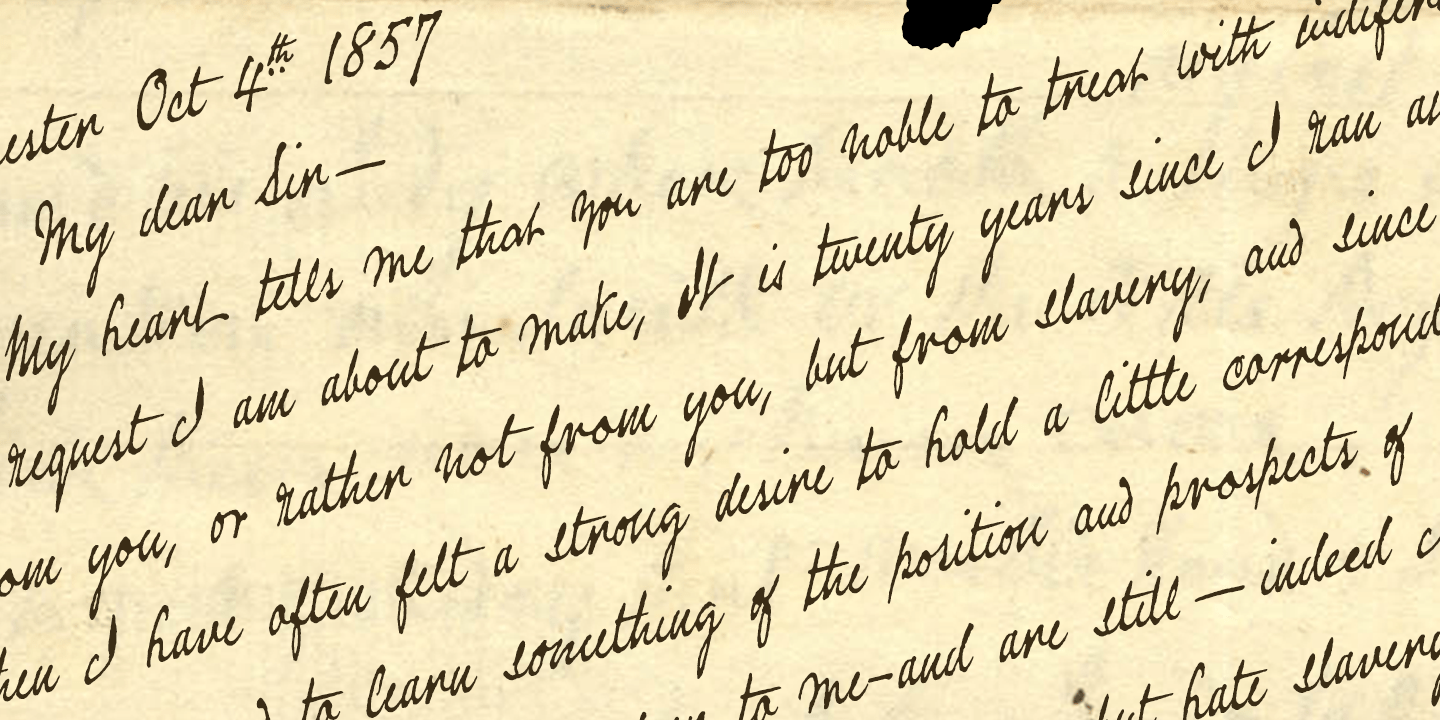 Oct 4th 1857
My dear Sir—
My heart tells me that you are too noble to treat with
request I am about to make, It is twenty years since I ran
you, or rather not from you, but from slavery, and since
I have often felt a strong desire to hold a little
to learn something of the position and prospects of
to me—and are still — indeed
but hate